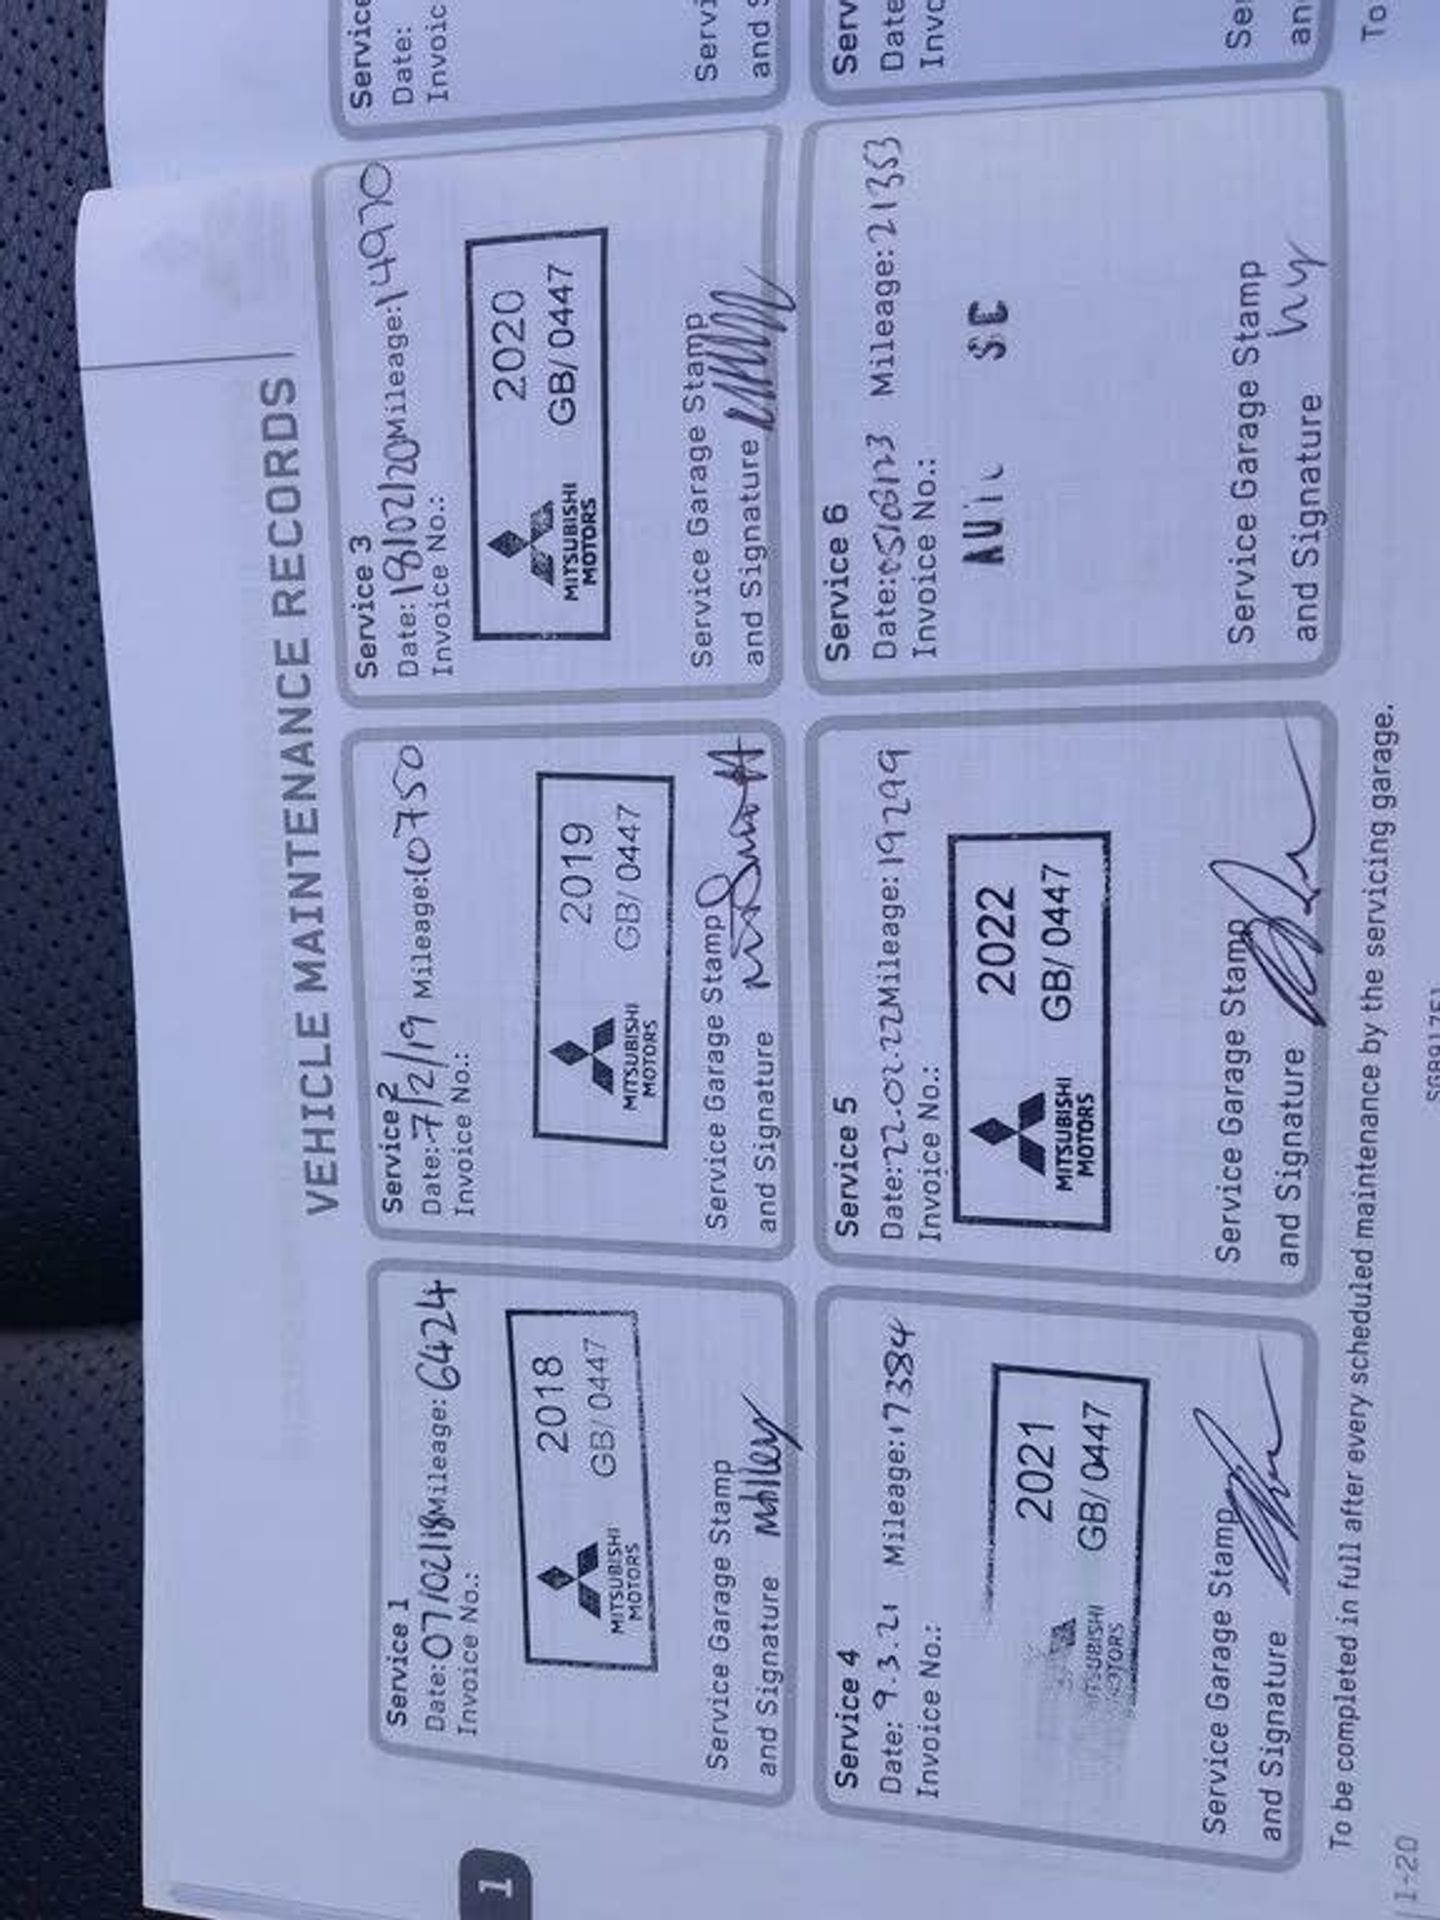 VEHICLE MAINTENANCE RECORDS
Service 1
Date: 07/02/18 Mileage: 6424
Invoice No.:
2018
GB/0447
MITSUBISHI
MOTORS
Service Garage Stamp
and Signature
Service 2
Date: 7/2/19 Mileage: 10750
Invoice No.:
2019
GB/0447
MITSUBISHI
MOTORS
Service Garage Stamp
and Signature
Service 3
Date: 18/02/20 Mileage: 14970
Invoice No.:
2020
GB/0447
MITSUBISHI
MOTORS
Service Garage Stamp
and Signature
Service 4
Date: 9.3.21 Mileage: 17384
Invoice No.:
2021
GB/0447
MITSUBISHI
MOTORS
Service Garage Stamp
and Signature
Service 5
Date: 22.02.22 Mileage: 19299
Invoice No.:
2022
GB/0447
MITSUBISHI
MOTORS
Service Garage Stamp
and Signature
Service 6
Date: 05/03/23 Mileage: 21353
Invoice No.:
Service Garage Stamp
and Signature
Service
Date:
Invoic
Servi
and S
Serv
Date
Invo
Se
an
To be completed in full after every scheduled maintenance by the servicing garage.
To
1-20
1